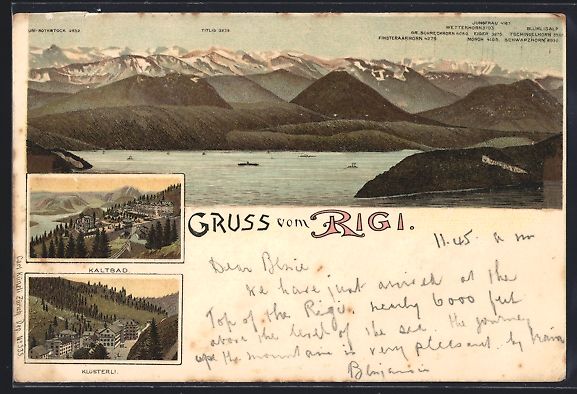 URI-ROTHSTOCK 2932
TITLIS 3239
FINSTERAARHORN 4275
GR. SCHRECKHORN 4080
WETTERHORN 3703
JUNGFRAU 4167
EIGER 3975
MÖNCH 4105
BLÜMLISALP
TSCHINGELHORN
SCHWARZHORN
GRUSS vom RIGI.
KALTBAD.
KLÖSTERLI.
Carl Künzli, Zürich, Dep. No
11.45 a m
Dear Bessie
We have just arrived at the
Top of the Rigi nearly 6000 feet
above the level of the sea. the journey
up the mountain is very pleasant by train
Benjamin